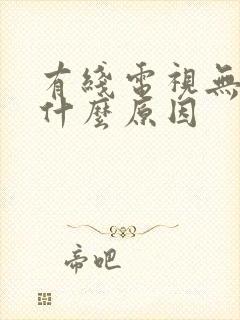 有綫電視無
什麼原因
帝吧